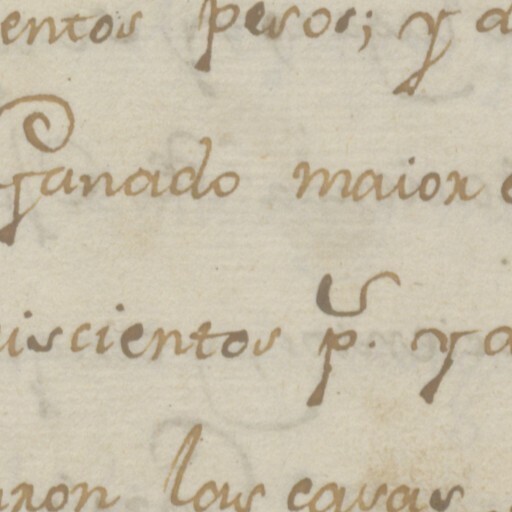 entos pesos; y d
Ganado maior e
iscientos p.s y d
aron las casas